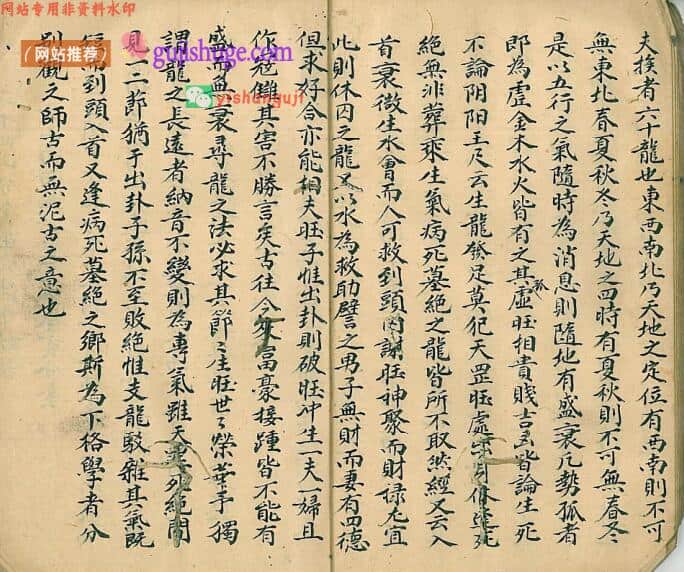 网站专用非资料水印
(网站推荐)
gujishuge.com
yishunguji
夫挨者六十龍也東西南北乃天地之定位有西南則不可
無東北春夏秋冬乃天地之四時有夏秋則不可無春冬
是以五行之氣隨時為消息則隨地有盛衰凡勢孤者
即為虛金木水火皆有之其虛孤旺相貴賤吉凶皆論生死
不論阴阳王尺云生龍發足莫犯天罡旺處
絕無非葬乘生氣病死墓絕之龍皆所不取然經又云入
首衰微生水會而人可救到頭囚謝旺神聚而財祿尤宜
此則休囚之龍又以水為救助譬之男子無財而妻有四德
俱求好合亦能相夫旺子惟出卦則破旺冲生一夫一婦且
作冤讎其害不勝言矣古往今來富豪接踵皆不能有
盛而無衰尋龍之法必求其節々生旺世々榮華乎獨
謂龍之長遠者納音不變則為專氣雖夭壽死絕間
見一二節猶于出卦子孫不至敗絕惟支龍駁雜其氣既
偏而到頭入首又逢病死墓絕之鄉斯為下格學者分
別觀之師古而無泥古之意也